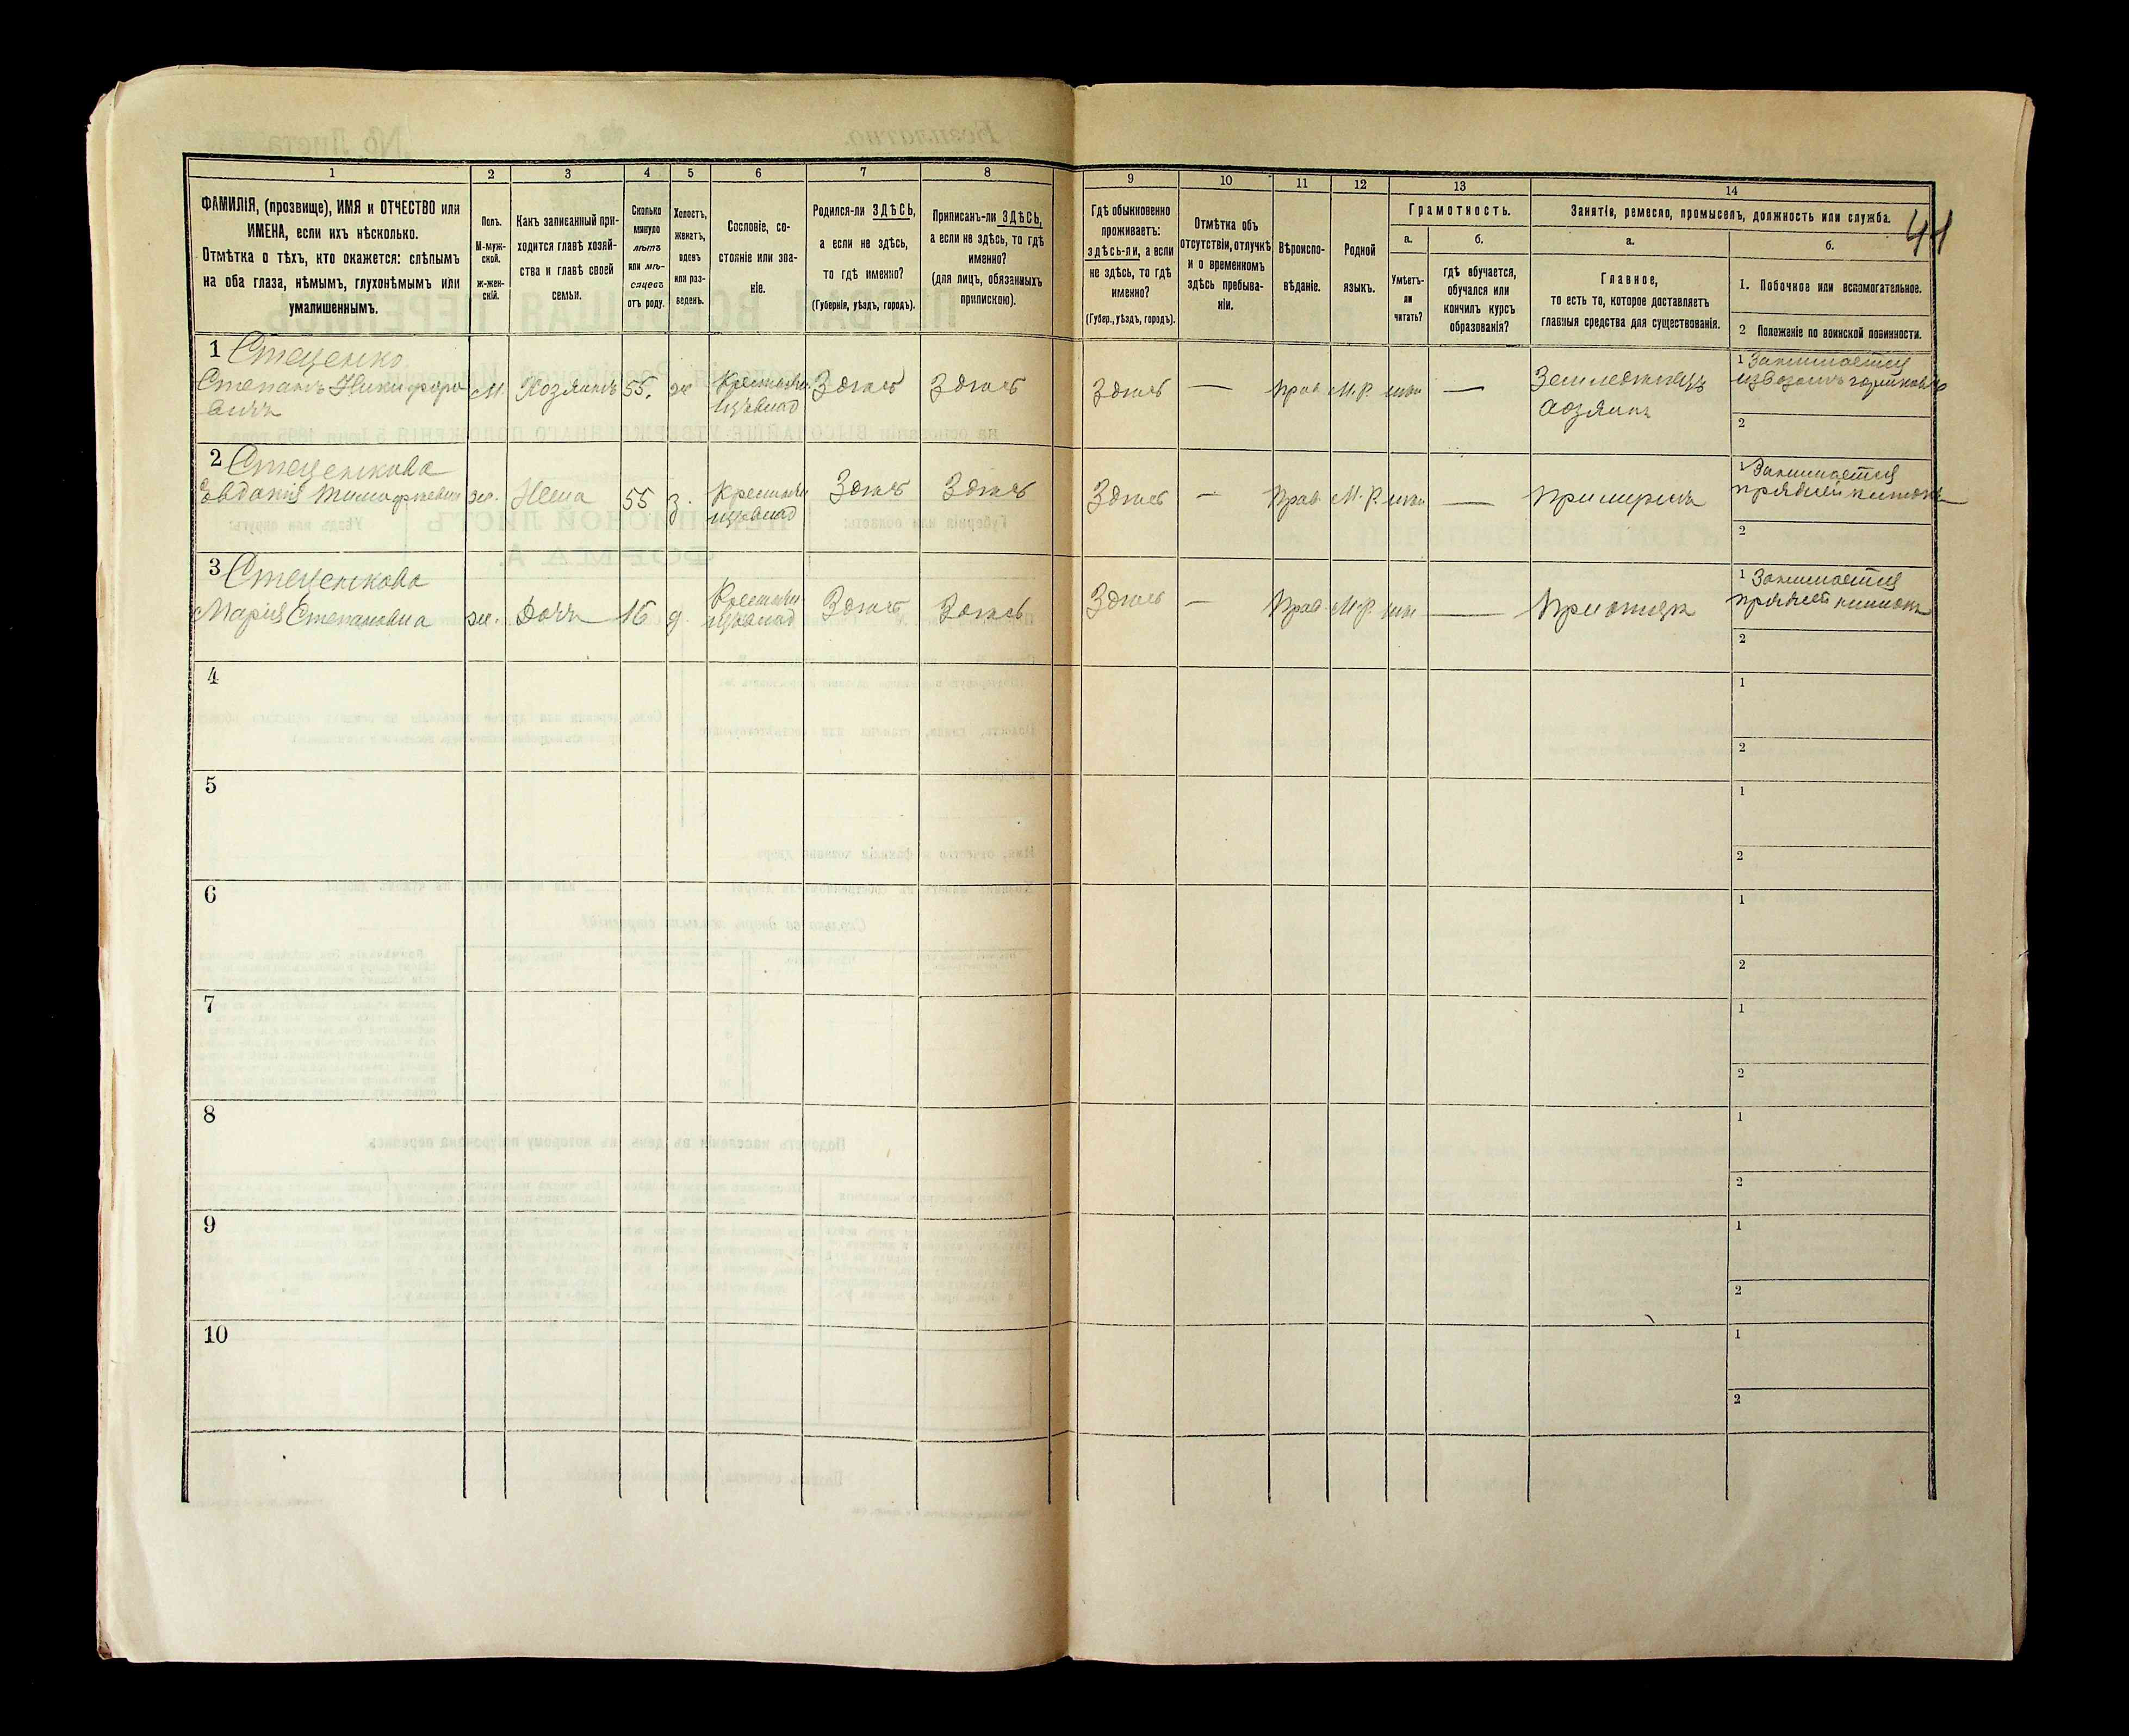 1
2
3
4
5
6
7
8
9
10
11
12
13
14
41
ФАМИЛІЯ, (прозвище), ИМЯ и ОТЧЕСТВО или
ИМЕНА, если ихъ нѣсколько.
Отмѣтка о тѣхъ, кто окажется: слѣпымъ
на оба глаза, нѣмымъ, глухонѣмымъ или
умалишеннымъ.
Полъ.
М-муж-
ской.
ж-жен-
скій.
Какъ записанный при-
ходится главѣ хозяй-
ства и главѣ своей
семьи.
Сколько
минуло
лѣтъ
или мѣ-
сяцевъ
отъ роду.
Холостъ,
женатъ,
вдовъ
или раз-
веденъ.
Сословіе, со-
стояніе или зва-
ніе.
Родился-ли ЗДѢСЬ,
а если не здѣсь,
то гдѣ именно?
(Губернія, уѣздъ, городъ).
Приписанъ-ли ЗДѢСЬ,
а если не здѣсь, то гдѣ
именно?
(для лицъ, обязанныхъ
припискою).
Гдѣ обыкновенно
проживаетъ:
здѣсь-ли, а если
не здѣсь, то гдѣ
именно?
(Губер., уѣздъ, городъ).
Отмѣтка объ
отсутствіи, отлучкѣ
и о временномъ
здѣсь пребыва-
ніи.
Вѣроиспо-
вѣданіе.
Родной
языкъ.
Грамотность.
а.
б.
Умѣетъ-
ли
читать?
гдѣ обучается,
обучался или
кончилъ курсъ
образованія?
Занятіе, ремесло, промыселъ, должность или служба.
а.
б.
Главное,
то есть то, которое доставляетъ
главныя средства для существованія.
1. Побочное или вспомогательное.
2 Положеніе по воинской повинности.
1 Стеценко
Степанъ Никифоро
вичъ
М. Хозяинъ 55. ж Крестьян.
Здѣсь Здѣсь Здѣсь — Прав М.Р. — Земледѣлецъ
хозяинъ
1 Занимается
извозомъ
2
2 Стеценкова
Евдокія
же. Жена 55 З. Крестьян
Здѣсь Здѣсь Здѣсь — Прав М.Р. —
1 Занимается
пряжей
2
3 Стеценкова
Марія Степановна
же. Дочь 16 д. Крестьян
Здѣсь Здѣсь Здѣсь — Прав М.Р. —
1 Занимается
пряжей
2
4
1
2
5
1
2
6
1
2
7
1
2
8
1
2
9
1
2
10
1
2